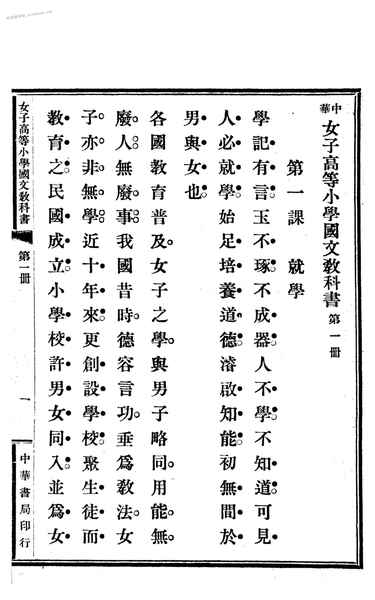 中華女子高等小學國文教科書第一冊
第一課 就學
學記有言玉不琢不成器人不學不知道可見
人必就學始足培養道德濬啟知能初無間於
男與女也
各國教育普及女子之學與男子略同用能無
廢人無廢事我國昔時德容言功垂爲敎法女
子亦非無學近十年來更創設學校聚生徒而
敎育之民國成立小學校許男女同入並爲女
女子高等小學國文敎科書 第一冊 一 中華書局印行